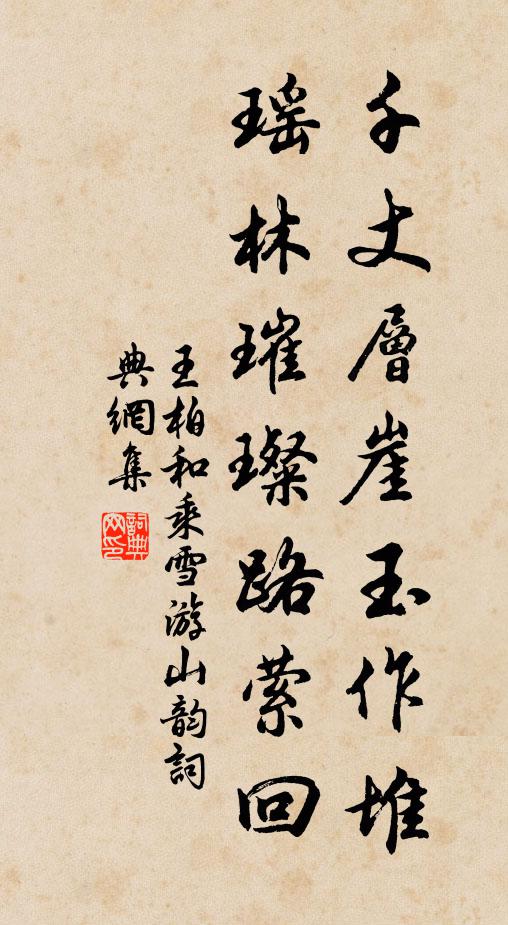 千丈層崖玉作堆
瑶林璀璨路萦回
王柏和乘雪游山韵詞
典網集
詞典
网印